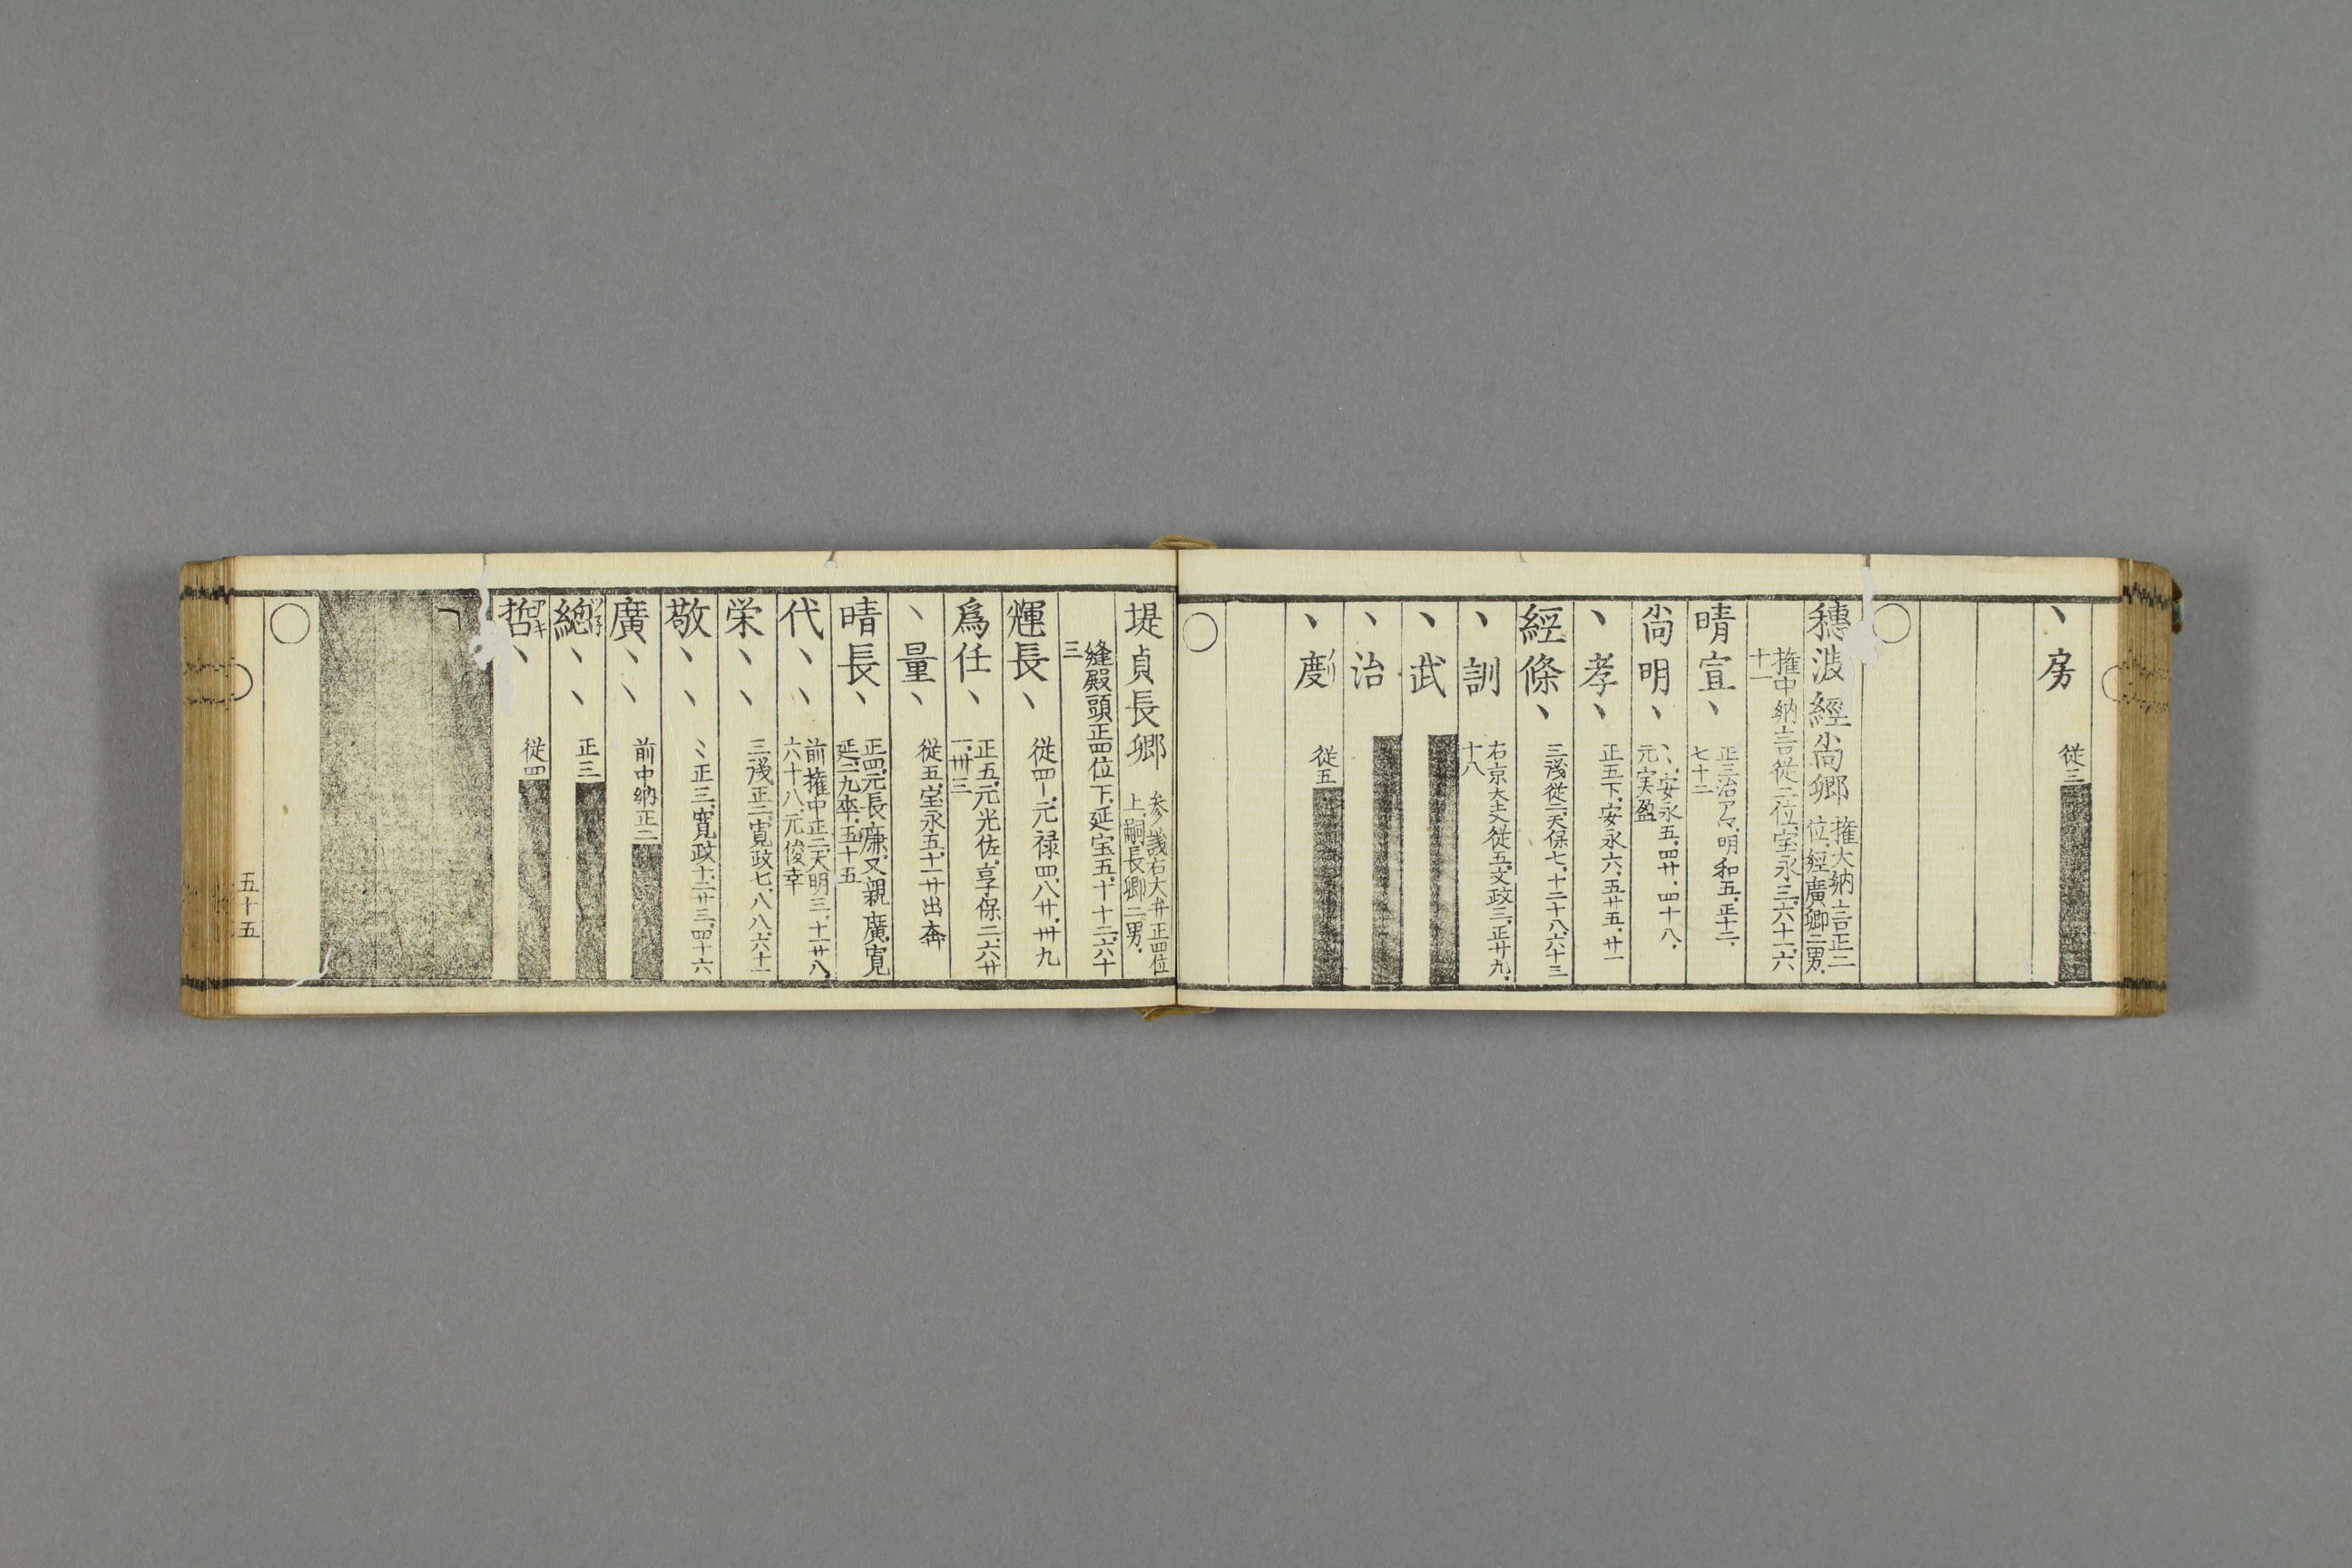 丶房 従三
穗波經尚郷 権大納言正二位、經廣卿二男、
権中納言従二位、宝永三、六十一、六十一
晴宣丶 正三治ア々、明和五、正十二、七十二
尚明丶 丶、安永五、四廿、四十八、元実盈
丶孝丶 正五下、安永六、五廿五、廿一
經條丶 三議従二、天保七、十二十八、六十三
丶訓 右京大夫従五、文政三、正廿九、十八
丶武
丶治
丶度 従五
堤貞長郷 参議右大弁正四位上、嗣長卿二男、
縫殿頭正四位下、延宝五、十十二、六十三
輝長丶 従四一、元禄四、八廿、卅九
爲任丶 正五、元光佐、享保二、六廿一、卅三
丶量丶 従五、宝永五、十一廿出奔
晴長丶 正四、元長廉、又親廣、寛延二、九卒、五十五
代丶丶 前権中正二、天明三、十一廿八、六十八、元俊幸
栄丶丶 三議正二、寛政七、八八、六十一
敬丶丶 〻正三、寛政十二廿三、四十六
廣丶丶 前中納正二
總丶丶 正三
哲丶丶 従四
五十五